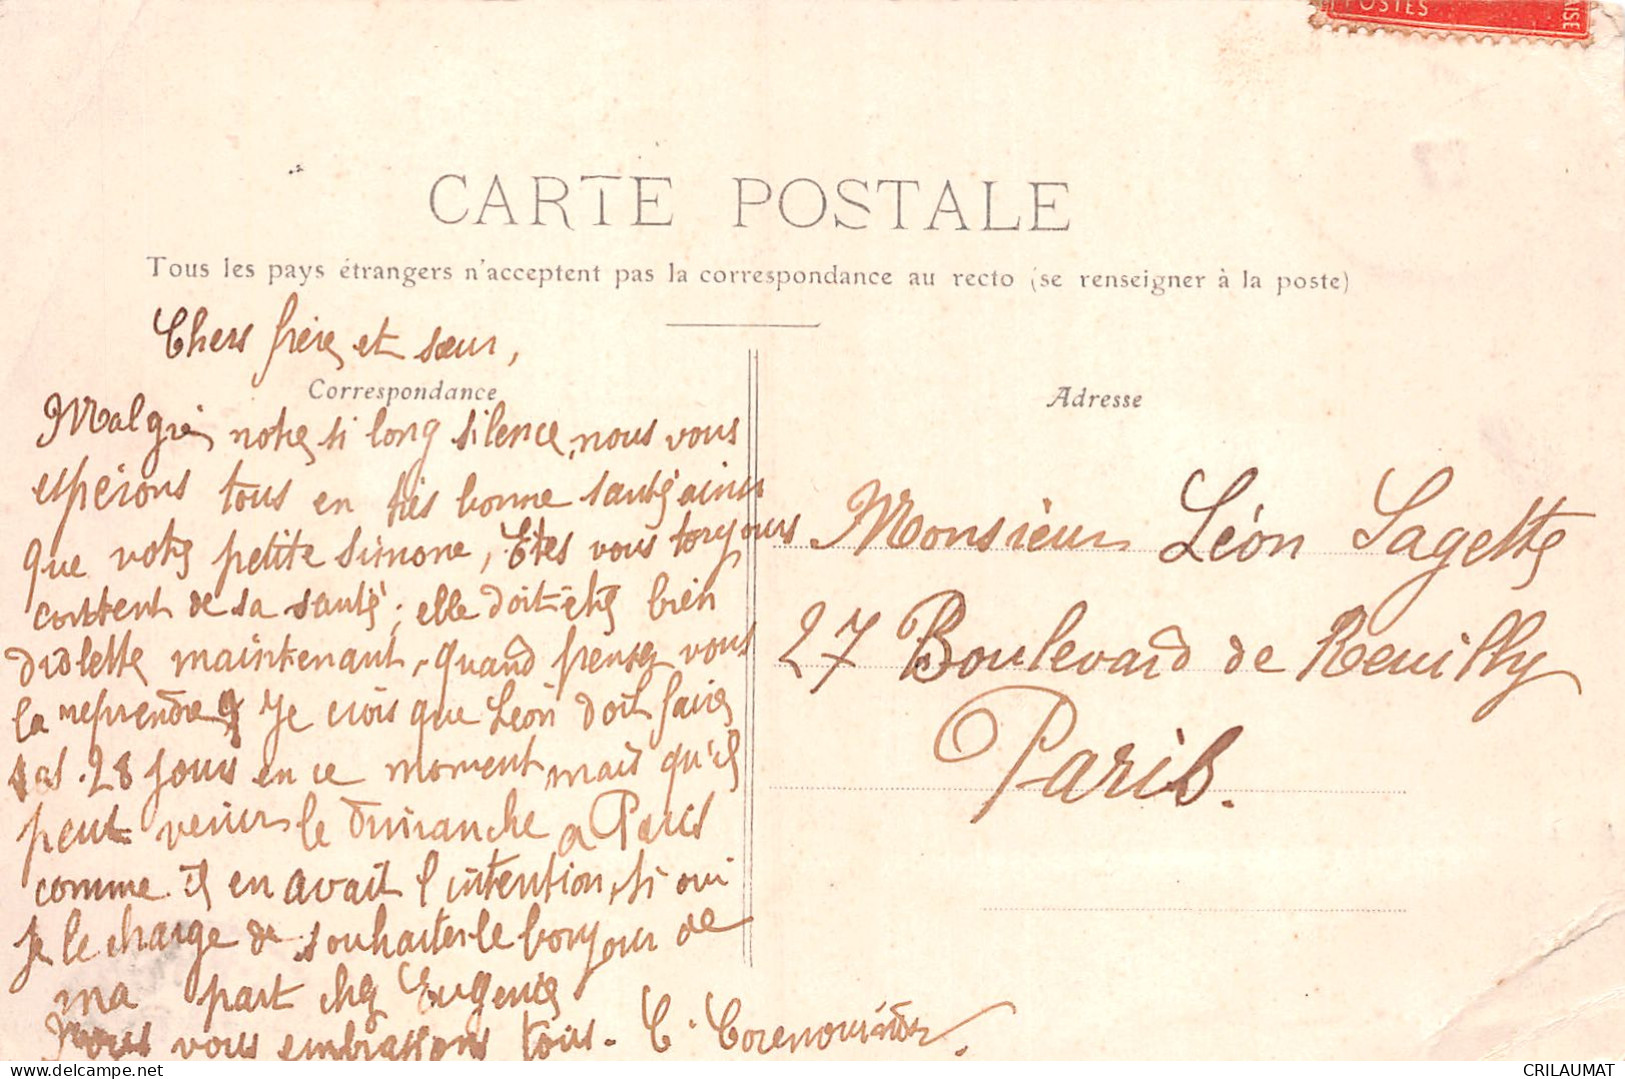 POSTES
CARTE POSTALE
Tous les pays étrangers n'acceptent pas la correspondance au recto (se renseigner à la poste)
Chers frère et sœur,
Correspondance
Adresse
Malgré notre si long silence, nous vous
espérons tous en très bonne santé ainsi
que votre petite Simone, Etes vous toujours
content de sa santé ; elle doit être bien
drolette maintenant, quand pensez vous
la reprendre ? Je crois que Léon doit faire
ses 28 jours en ce moment mais qu'il
peut venir le dimanche a Paris
comme il en avait l'intention, si oui
Je le charge de souhaiter le bonjour de
ma part chez Eugenie
Nous vous embrassons tous. C.
Monsieur Léon Sagette
27 Boulevard de Reuilly
Paris.
delcampe.net
CRILAUMAT